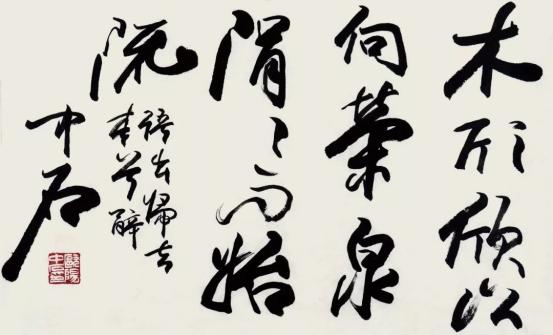 木欣欣以
向榮泉
涓〻而始
流
語出歸去
来兮辭
中石
歐陽中石